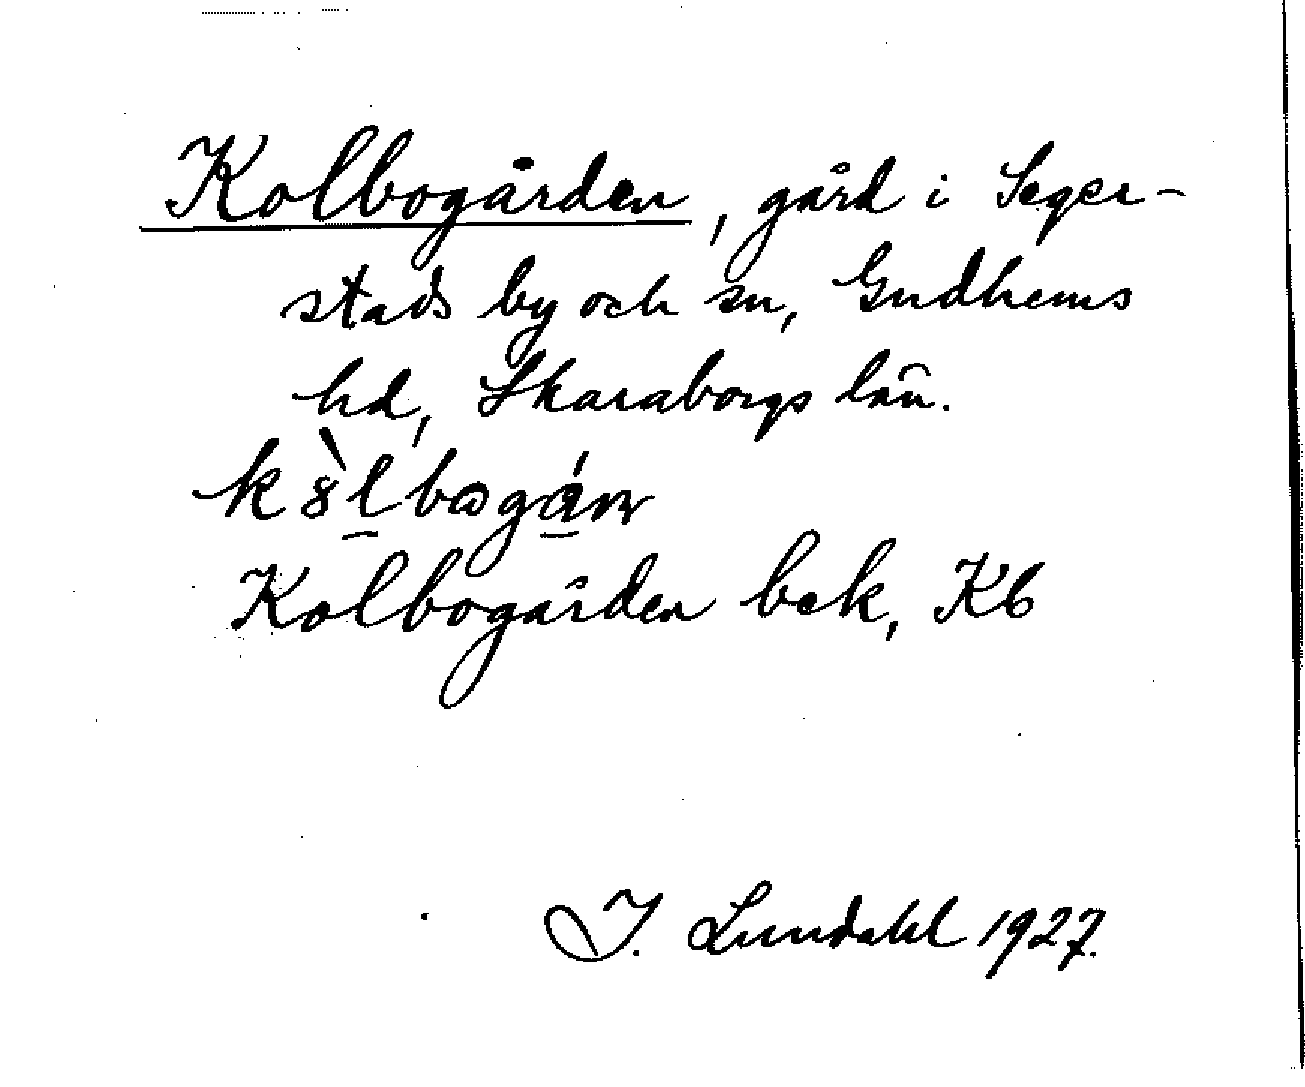 Kolbogården, gård i Seger-
stads by och sn, Gudhems
hd, Skaraborgs län.
Kolbogården bek, Kb
I. Lundahl 1927.